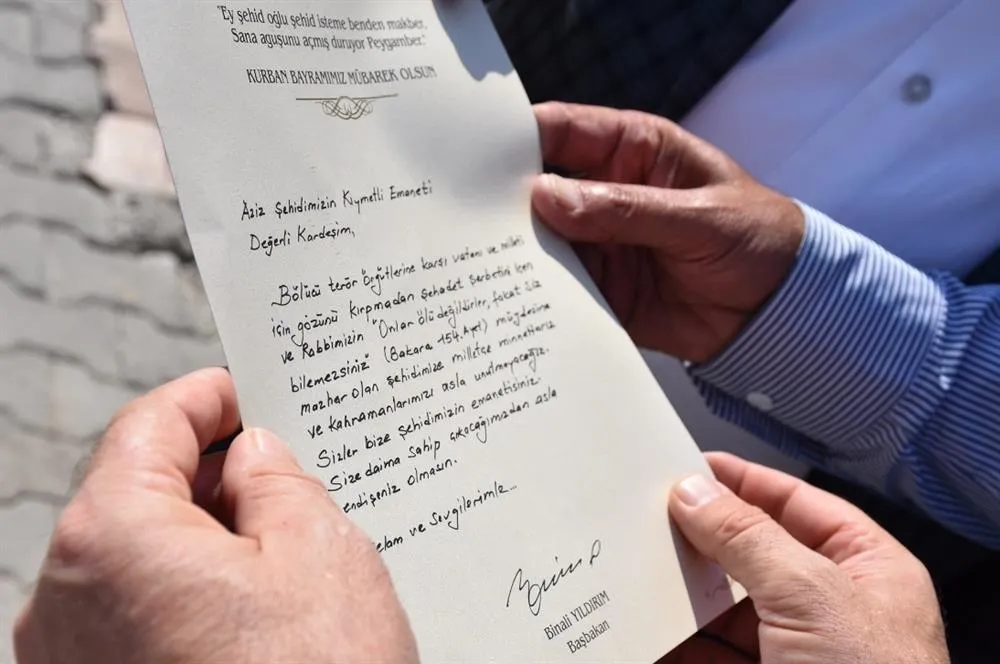 "Ey şehid oğlu şehid isteme benden makber,
Sana aguşunu açmış duruyor Peygamber."
KURBAN BAYRAMIMIZ MÜBAREK OLSUN
Aziz Şehidimizin Kıymetli Emaneti
Değerli Kardeşim,
Bölücü terör örgütlerine karşı vatanı ve milleti
için gözünü kırpmadan şehadet şerbetini içen
ve Rabbimizin "Onlar ölü değildirler, fakat siz
bilemezsiniz" (Bakara 154.Ayet) müjdesine
mazhar olan şehidimize milletçe minnettarız
ve kahramanlarımızı asla unutmayacağız.
Sizler bize şehidimizin emanetisiniz.
Size daima sahip çıkacağımızdan asla
endişeniz olmasın.
elam ve Sevgilerimle...
Binali YILDIRIM
Başbakan